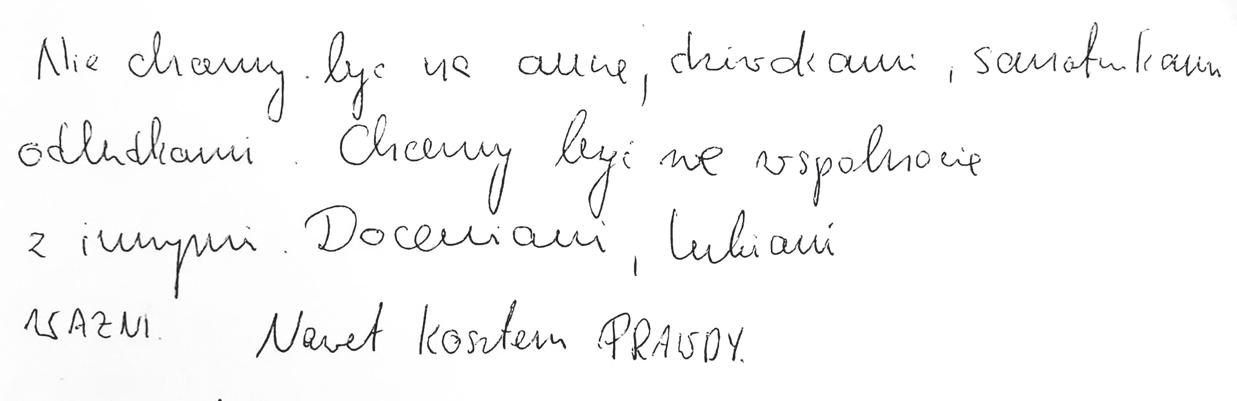 Nie chcemy być na aucie, dziwokami, samotnikami
odludkami. Chcemy być we wspolnocie
z innymi. Doceniani, lubiani
WAZNI. Nawet kosztem PRAWDY.